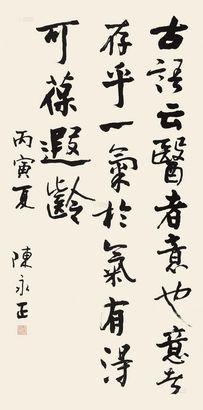 古語云醫者意也意者
存乎一氣於氣有得
可葆遐齡
丙寅夏
陳永正